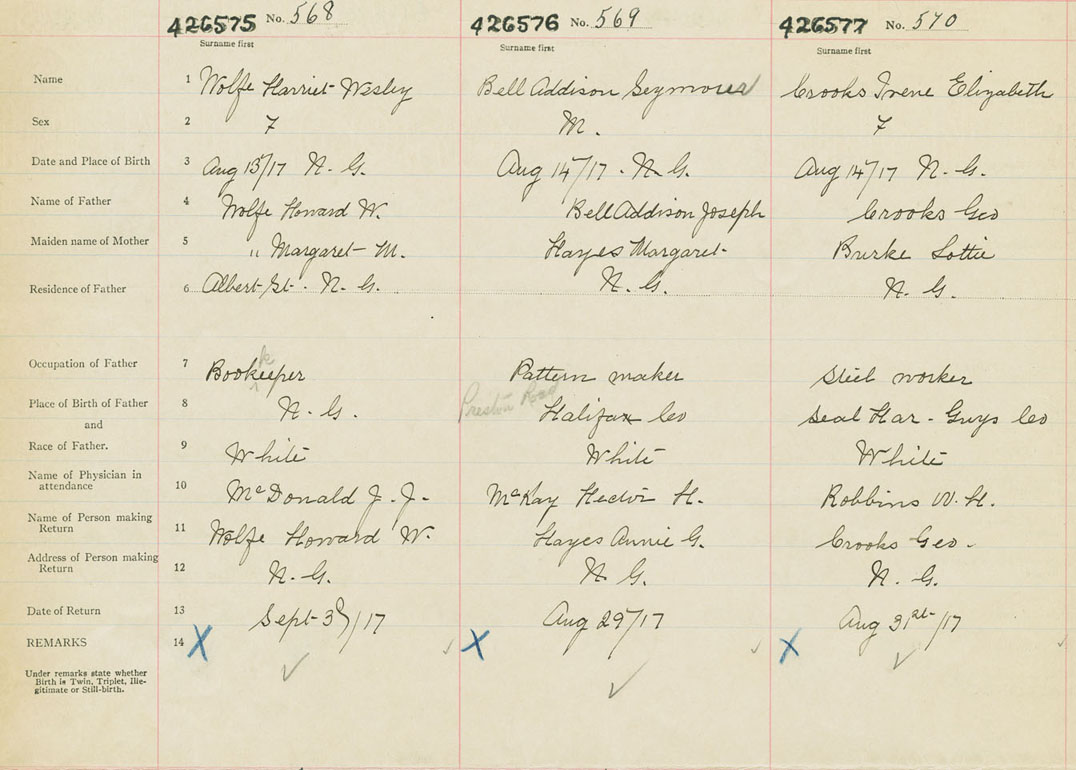 426575 No. 568 426576 No. 569 426577 No. 570
Surname first Surname first Surname first
Name 1 Wolfe Harriet Wesley Bell Addison Seymour Crooks Irene Elizabeth
Sex 2 F M. F
Date and Place of Birth 3 Aug 13/17 N. G. Aug 14/17 . N. G. Aug 14/17 N. G.
Name of Father 4 Wolfe Howard W. Bell Addison Joseph Crooks Geo
Maiden name of Mother 5 " Margaret M. Hayes Margaret Burke Lottie
Residence of Father 6 Albert St. N. G. N. G. N. G.
k
Occupation of Father 7 Bookeeper Pattern maker Steel worker
Preston Road
Place of Birth of Father 8 N. G. Halifax Co Seal Har - Guys Co
and
Race of Father. 9 White White White
Name of Physician in
attendance 10 McDonald J. J. McKay Hector H. Robbins W. H.
Name of Person making
Return 11 Wolfe Howard W. Hayes Annie G. Crooks Geo.
Address of Person making
Return 12 N. G. N. G. N. G.
Date of Return 13 Sept 3/17 Aug 29/17 Aug 31st/17
REMARKS 14 X X X
Under remarks state whether
Birth is Twin, Triplet, Ille-
gitimate or Still-birth.